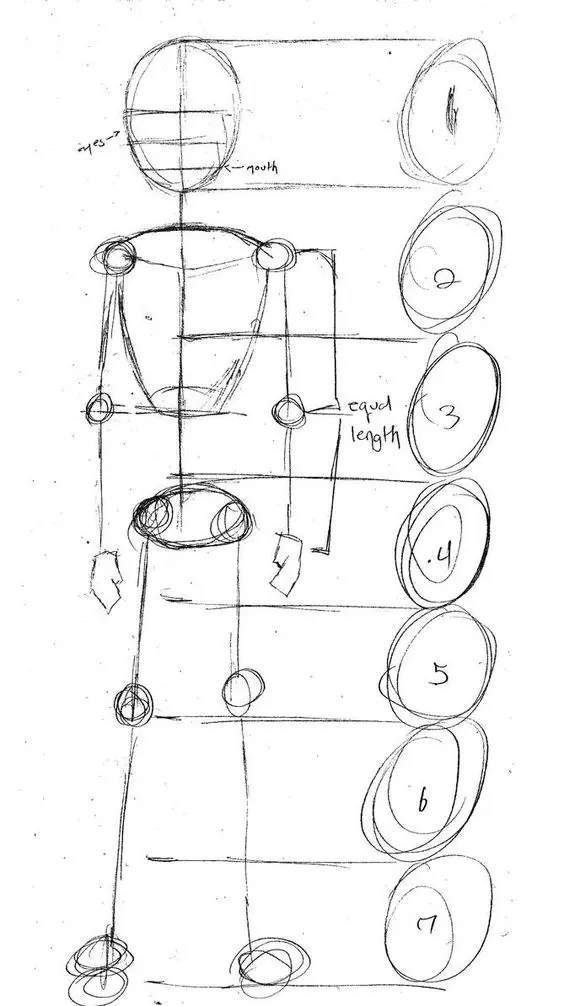 1
eyes
mouth
2
3
equal
length
.4
5
6
7